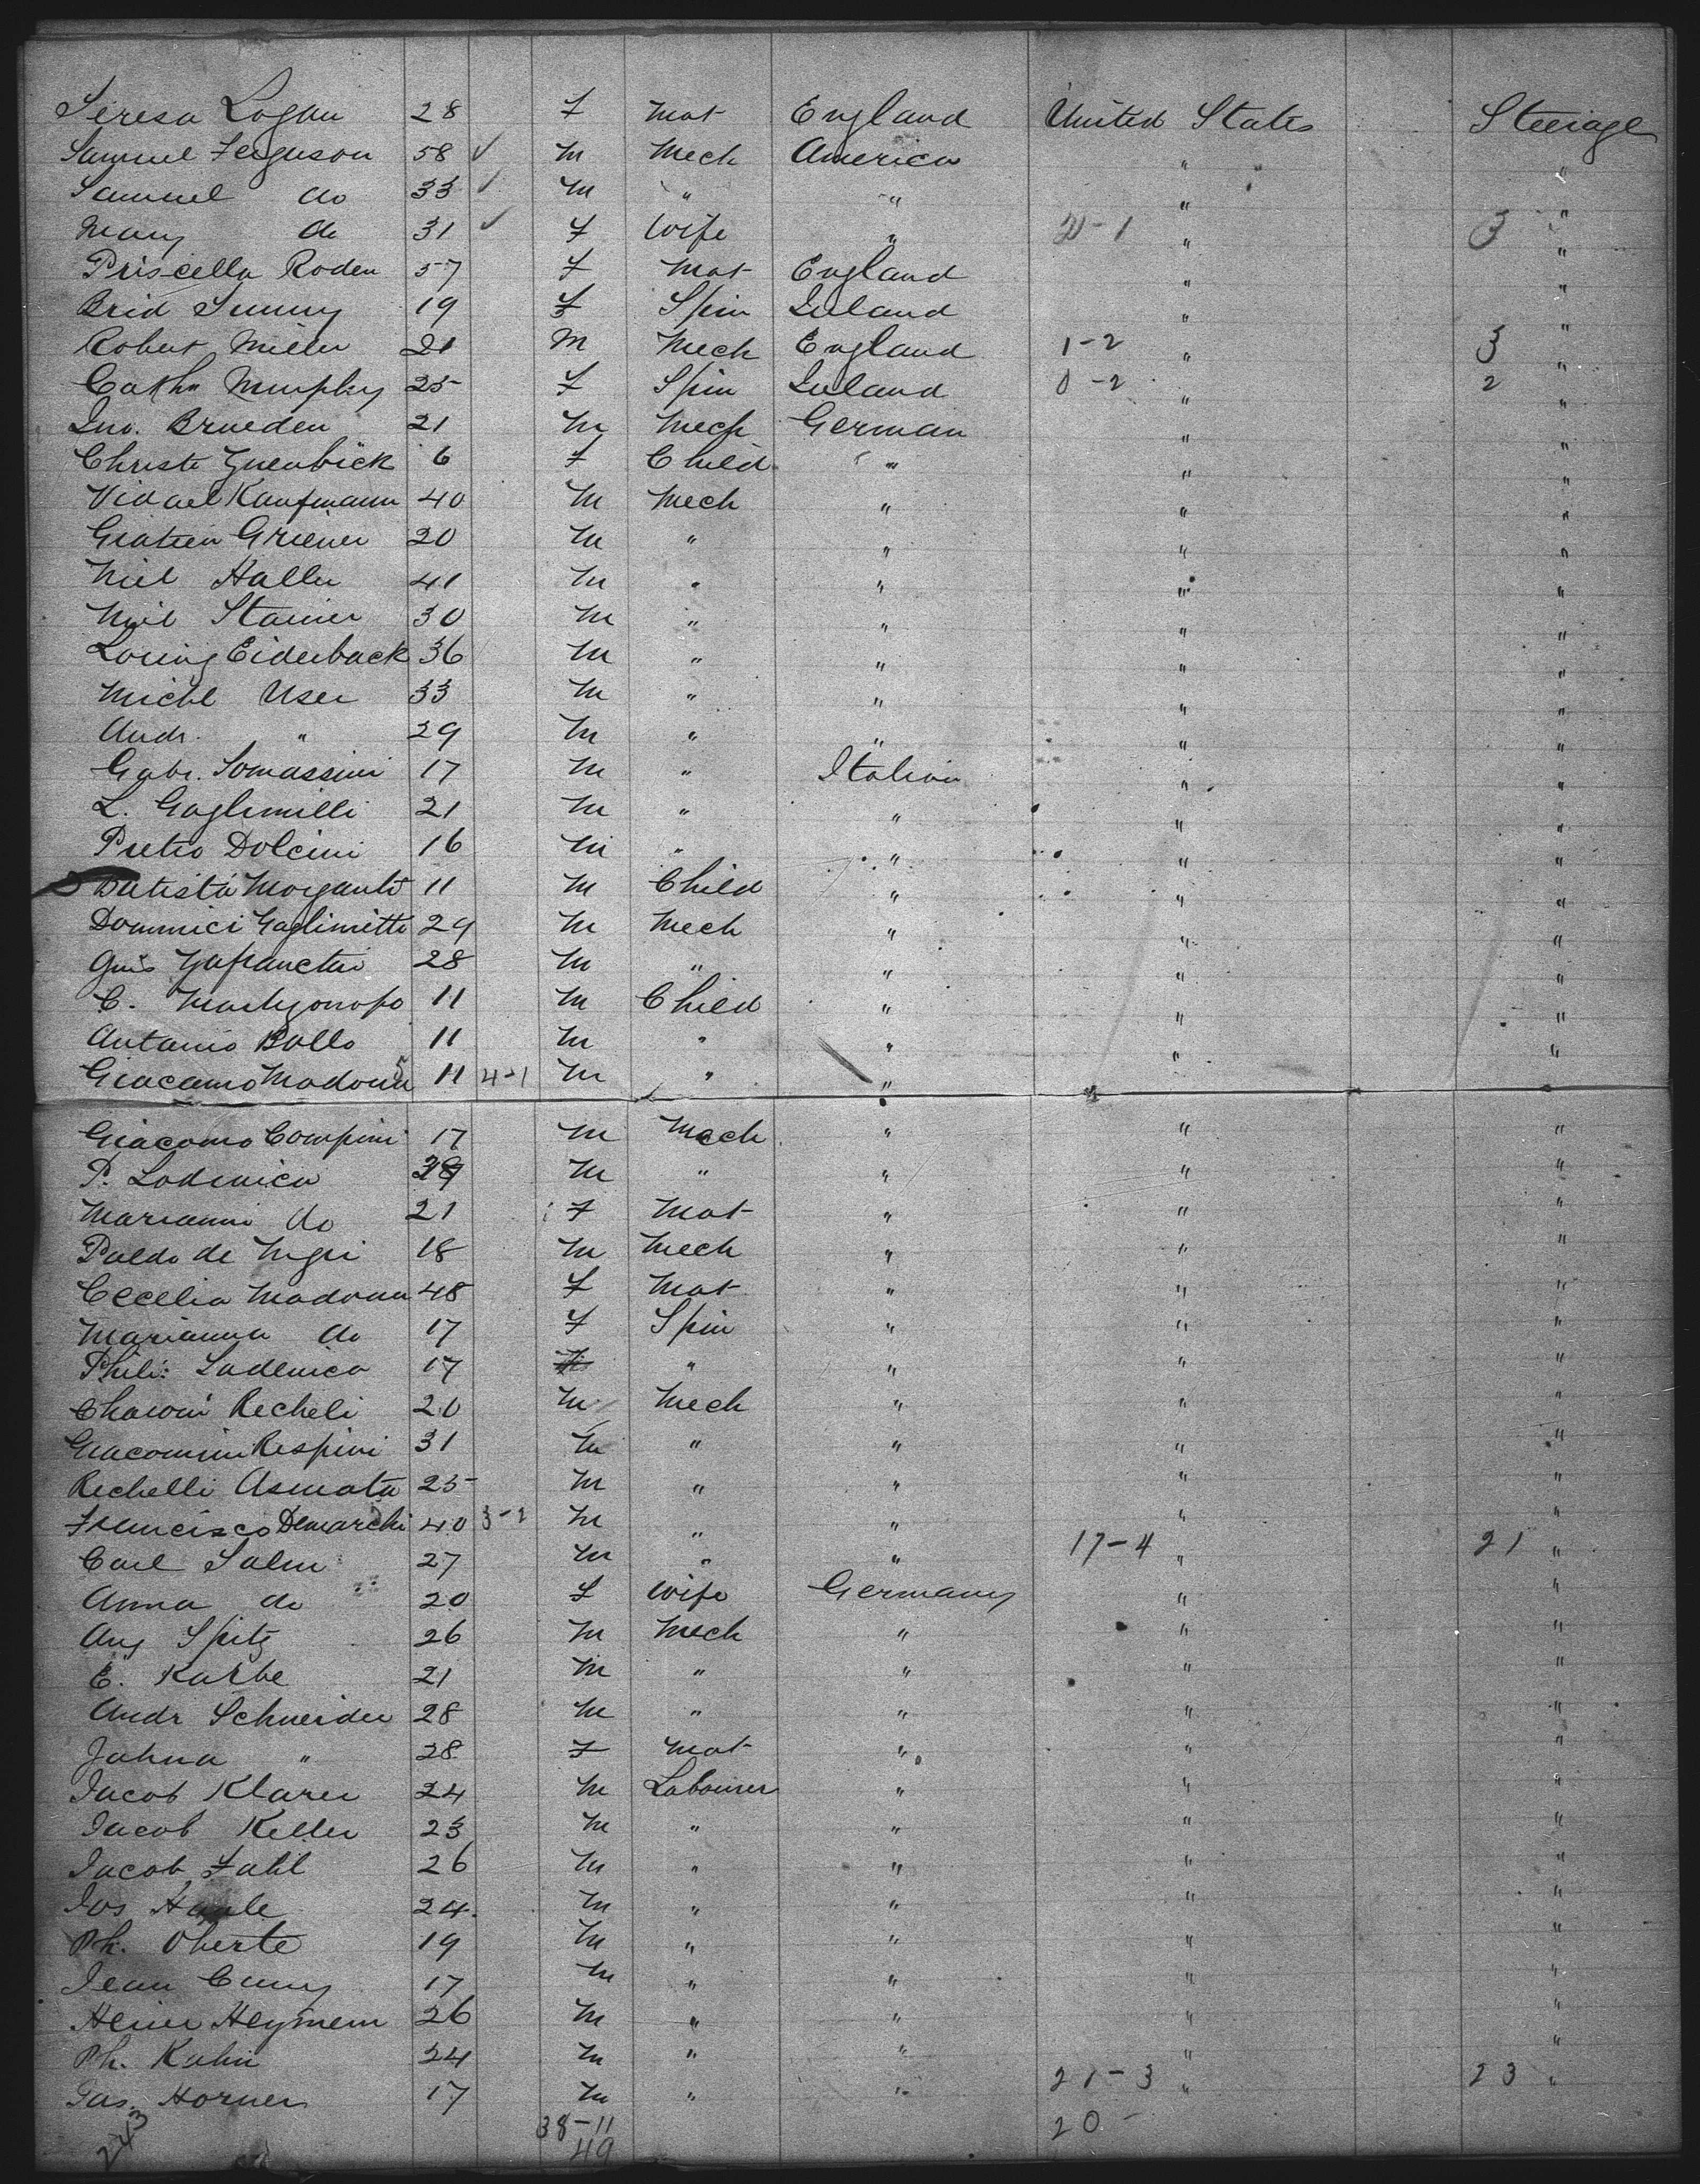 Teresa Logan 28 F Mat England United States Steerage
Samuel Ferguson 58 ✓ M Mech America " "
Samuel do 33 ✓ M " " " "
Mary do 31 ✓ F Wife " 21-1 " 3 "
Priscella Roden 57 F Mat England " "
Brid Sunny 19 F Spin Ireland " "
Robert Miller 21 M Mech England 1-2 " 3 "
Cathn Murphy 25 F Spin Ireland 0-2 " 2 "
Jno. Brueden 21 M Mech German " "
Christe 6 F Child " " "
Vidael Kaufmann 40 M Mech " " "
Griener 20 M " " " "
Niel Haller 41 M " " " "
Neil Stainer 30 M " " " "
Loring Eiderback 36 M " " " "
Michl User 33 M " " " "
Andr. " 29 M " " " "
Gabr. Tomassini 17 M " Italian " "
L. Gaglimilli 21 M " " " "
Pietro Dolcini 16 M " " " "
Batista Morganti 11 M Child " " "
Dominici Gaglimitti 29 M Mech " " "
Guis 28 M " " " "
C. 11 M Child " " "
Antonio Ballo 11 M " " " "
Giacamo Madonna 11 4-1 M " " " "
Giacomo Compini 17 M Mech " " "
P. Lodenico M " " " "
Marianni do 21 F Mat " " "
Paldo de Negri 18 M Mech " " "
Cecelia Madonna 48 F Mat " " "
Marianna do 17 F Spin " " "
Phili: Ladenico 17 " " " "
Recheli 20 M Mech " " "
Giacomini Respini 31 M " " " "
Rechelli Asmata 25 M " " " "
Francisco Demarchi 40 3-2 M " " " "
Carl Salm 27 M " " 17-4 " 21 "
Anna do 20 F Wife Germany " "
Aug Spitz 26 M Mech " " "
E. Karbe 21 M " " " "
Andr Schneider 28 M " " " "
Johna " 28 F Mat " " "
Jacob Klarer 24 M Labourer " " "
Jacob Keller 23 M " " " "
Jacob Fahl 26 M " " " "
Jos Haule 24 M " " " "
Ph. Oberte 19 M " " " "
Jean Cuny 17 M " " " "
Heinr Heymem 26 M " " " "
Ph. Kuhn 24 M " " " "
Gus. Horner 17 M " " 21-3 " 23 "
38-11 20-
243 49